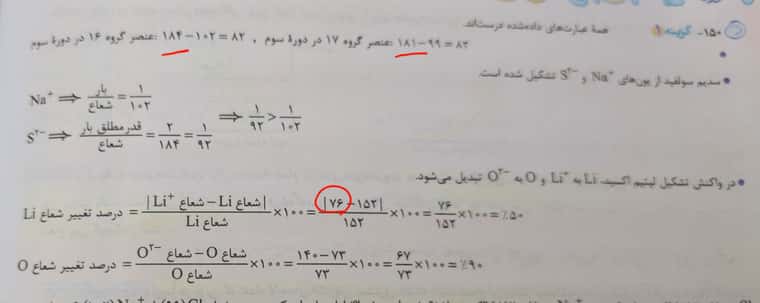 ۱۵۰- گزینه ۱ همهٔ عبارت‌های داده‌شده درست‌اند.
عنصر گروه ۱۷ در دورهٔ سوم: ۱۸۱-۹۹=۸۲ , عنصر گروه ۱۶ در دورهٔ سوم: ۱۸۴-۱۰۲=۸۲
• سدیم سولفید از یون‌های Na⁺ و S²⁻ تشکیل شده است.
Na⁺ ⟹ بار/شعاع = ۱/۱۰۲
⟹ ۱/۹۲ > ۱/۱۰۲
S²⁻ ⟹ قدرمطلق بار/شعاع = ۲/۱۸۴ = ۱/۹۲
• در واکنش تشکیل لیتیم اکسید، Li به Li⁺ و O به O²⁻ تبدیل می‌شود.
درصد تغییر شعاع Li = |شعاع Li⁺ - شعاع Li|/شعاع Li ×۱۰۰ = |۷۶-۱۵۲|/۱۵۲ ×۱۰۰ = ۷۶/۱۵۲ ×۱۰۰ = ٪۵۰
درصد تغییر شعاع O = شعاع O²⁻ - شعاع O/شعاع O ×۱۰۰ = ۱۴۰-۷۳/۷۳ ×۱۰۰ = ۶۷/۷۳ ×۱۰۰ = ٪۹۰